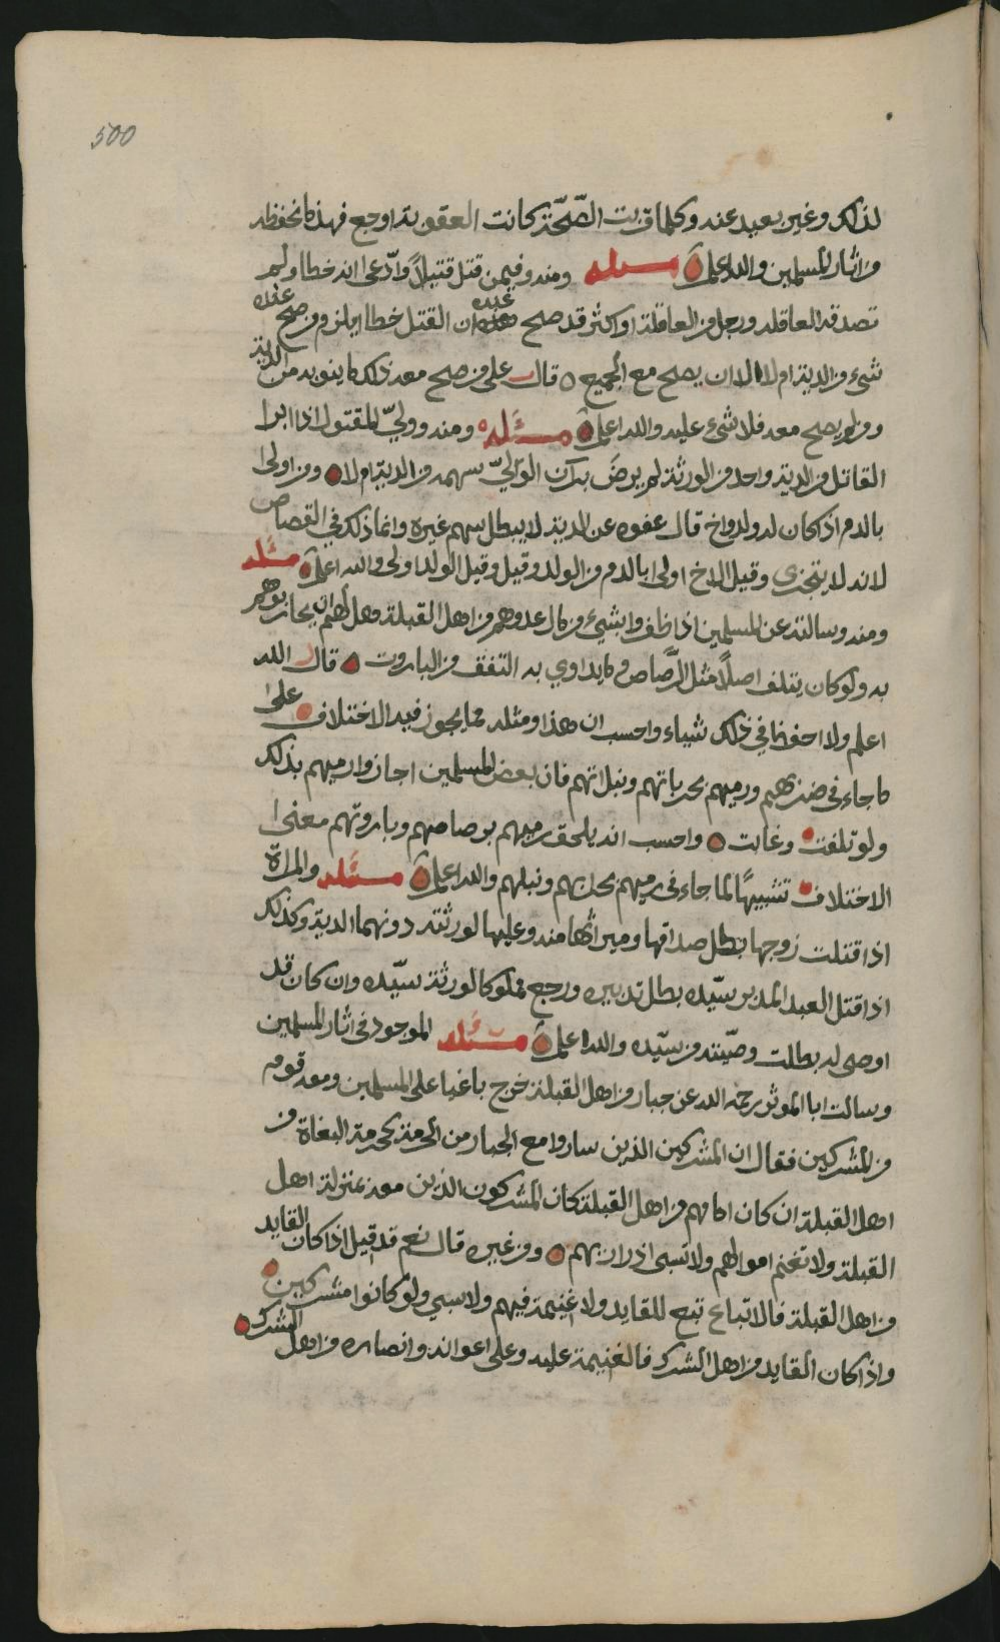 500
لذلك وغير بعيد عنه وكلما قربت الصّحّة كانت العقوبة اوجع فهذا ما نحفظه
من اثار المسلمين والله اعلم مسئله ومنه وفيمن قتل قتيلاً وادّعى انه خطا ولم
تصدقه العاقله ورجل من العاقلة او اكثر قد صح عنده ان القتل خطا ايلزم من صح عنده
شيء من الدية ام لا الا ان يصح مع الجميع قال على من صح معه ذلك ما ينوبه من الدية
ومن لم يصح معه فلا شيء عليه والله اعلم مسئله ومنه ووليّ المقتول اذا ابرا
القاتل من الدية واحد من الورثة لم يرضَ بذلك الوليّ سهمه من الدية ام لا ومن اولى
بالدم اذا كان له ولد واخ قال عفوه عن الدية لا يبطل سهم غيره وانما ذلك في القصاص
لانه لا يتجزى وقيل الاخ اولى بالدم من الولد وقيل وقيل الولد اولى والله اعلم مسئله
ومنه وسالته عن المسلمين اذا ظفروا بشيء من مال عدوهم من اهل القبلة وهل لهم ان يحاربوهم
به ولو كان يتلف اصلاً مثل الرَّصاص وما يداوي به التفق من الباروت قال الله
اعلم ولا احفظ في ذلك شيئاء واحسب ان هذا ومثله مما يجوز فيه الاختلاف على
ما جاء في ضربهم ورميهم بحرباتهم ونبلاتهم فان بعض المسلمين اجازوا رميهم بذلك
ولو تلفت وغابت واحسب انه يلحق رميهم برصاصهم وباروتهم معنى
الاختلاف تشبيهًا لما جاء في رميهم بحرابهم ونبلهم والله اعلم مسئله والمراة
اذا قتلت زوجها بطل صداقها وميراثها منه وعليها لورثته دونهما الدية وكذلك
اذا قتل العبد المدبر سيّده بطل تدبيره ورجع مملوكا لورثة سيّده وان كان قد
اوصى له بطلت وصيّته من سيّده والله اعلم مسئله الموجود في اثار المسلمين
وسالت ابا الموثر رحمه الله عن جبار من اهل القبلة خرج باغيا على المسلمين ومعه قوم
من المشركين فقال ان المشركين الذين ساروا مع الجبار من الحرمة بحرمة البغاة من
اهل القبلة ان كان امامهم من اهل القبلة كان المشركون الذين معه بمنزلة اهل
القبلة ولا تغنم اموالهم ولا تسبى اذراريهم ومن غيره قال نعم قد قيل اذا كان القايد
من اهل القبلة فالاتباع تبع للقايد ولا غنيمة فيهم ولا سبي ولو كانوا مشركين
واذا كان القايد من اهل الشرك فالغنيمة عليه وعلى اعوانه وانصاره من اهل الشرك